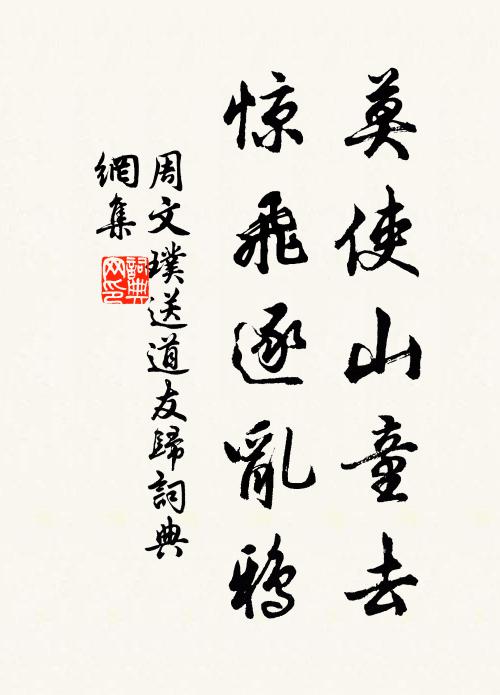 莫使山童去
惊飛逐亂鴉
周文璞送道友歸詞典
網集
詞典網印